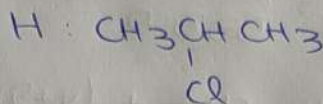 H : CH3CHCH3
Cl